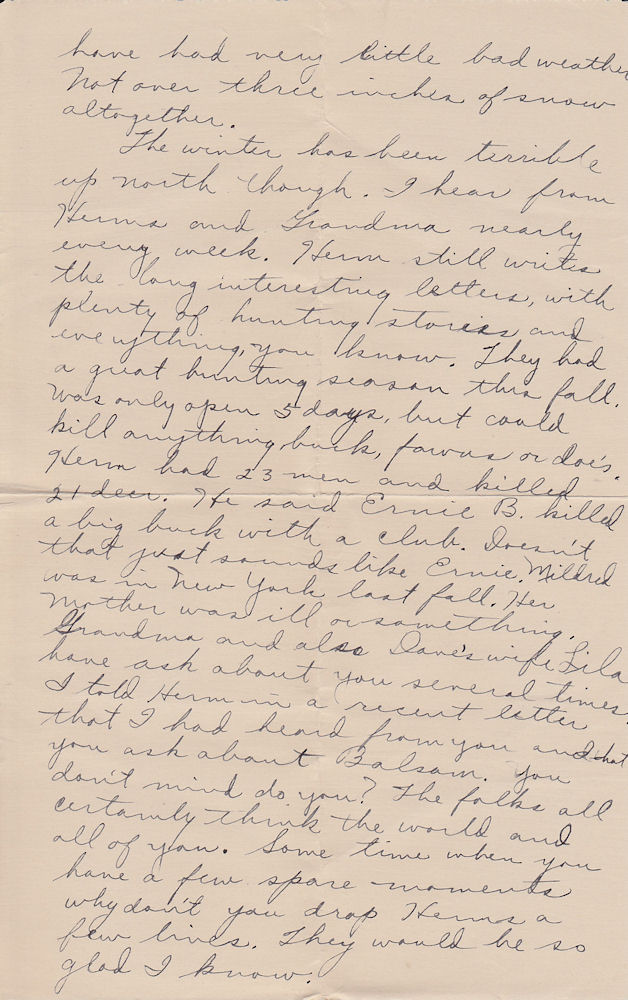 have had very little bad weather
Not over three inches of snow
altogether.
The winter has been terrible
up north though. I hear from
Herms and Grandma nearly
every week. Herm still writes
the long interesting letters, with
plenty of hunting stories and
everything, you know. They had
a great hunting season this fall.
Was only open 5 days, but could
kill anything, buck, fawns or doe's.
Herm had 23 men and killed
21 deer. He said Ernie B. killed
a big buck with a club. Doesn't
that just sounds like Ernie. Mildred
was in New York last fall. Her
Mother was ill or something.
Grandma and also Dave's wife Lila
have ask about you several times.
I told Herm in a recent letter
that I had heard from you and that
you ask about Balsam. You
don't mind do you? The folks all
certainly think the world and
all of you. Some time when you
have a few spare moments
why don't you drop Herms a
few lines. They would be so
glad I know.